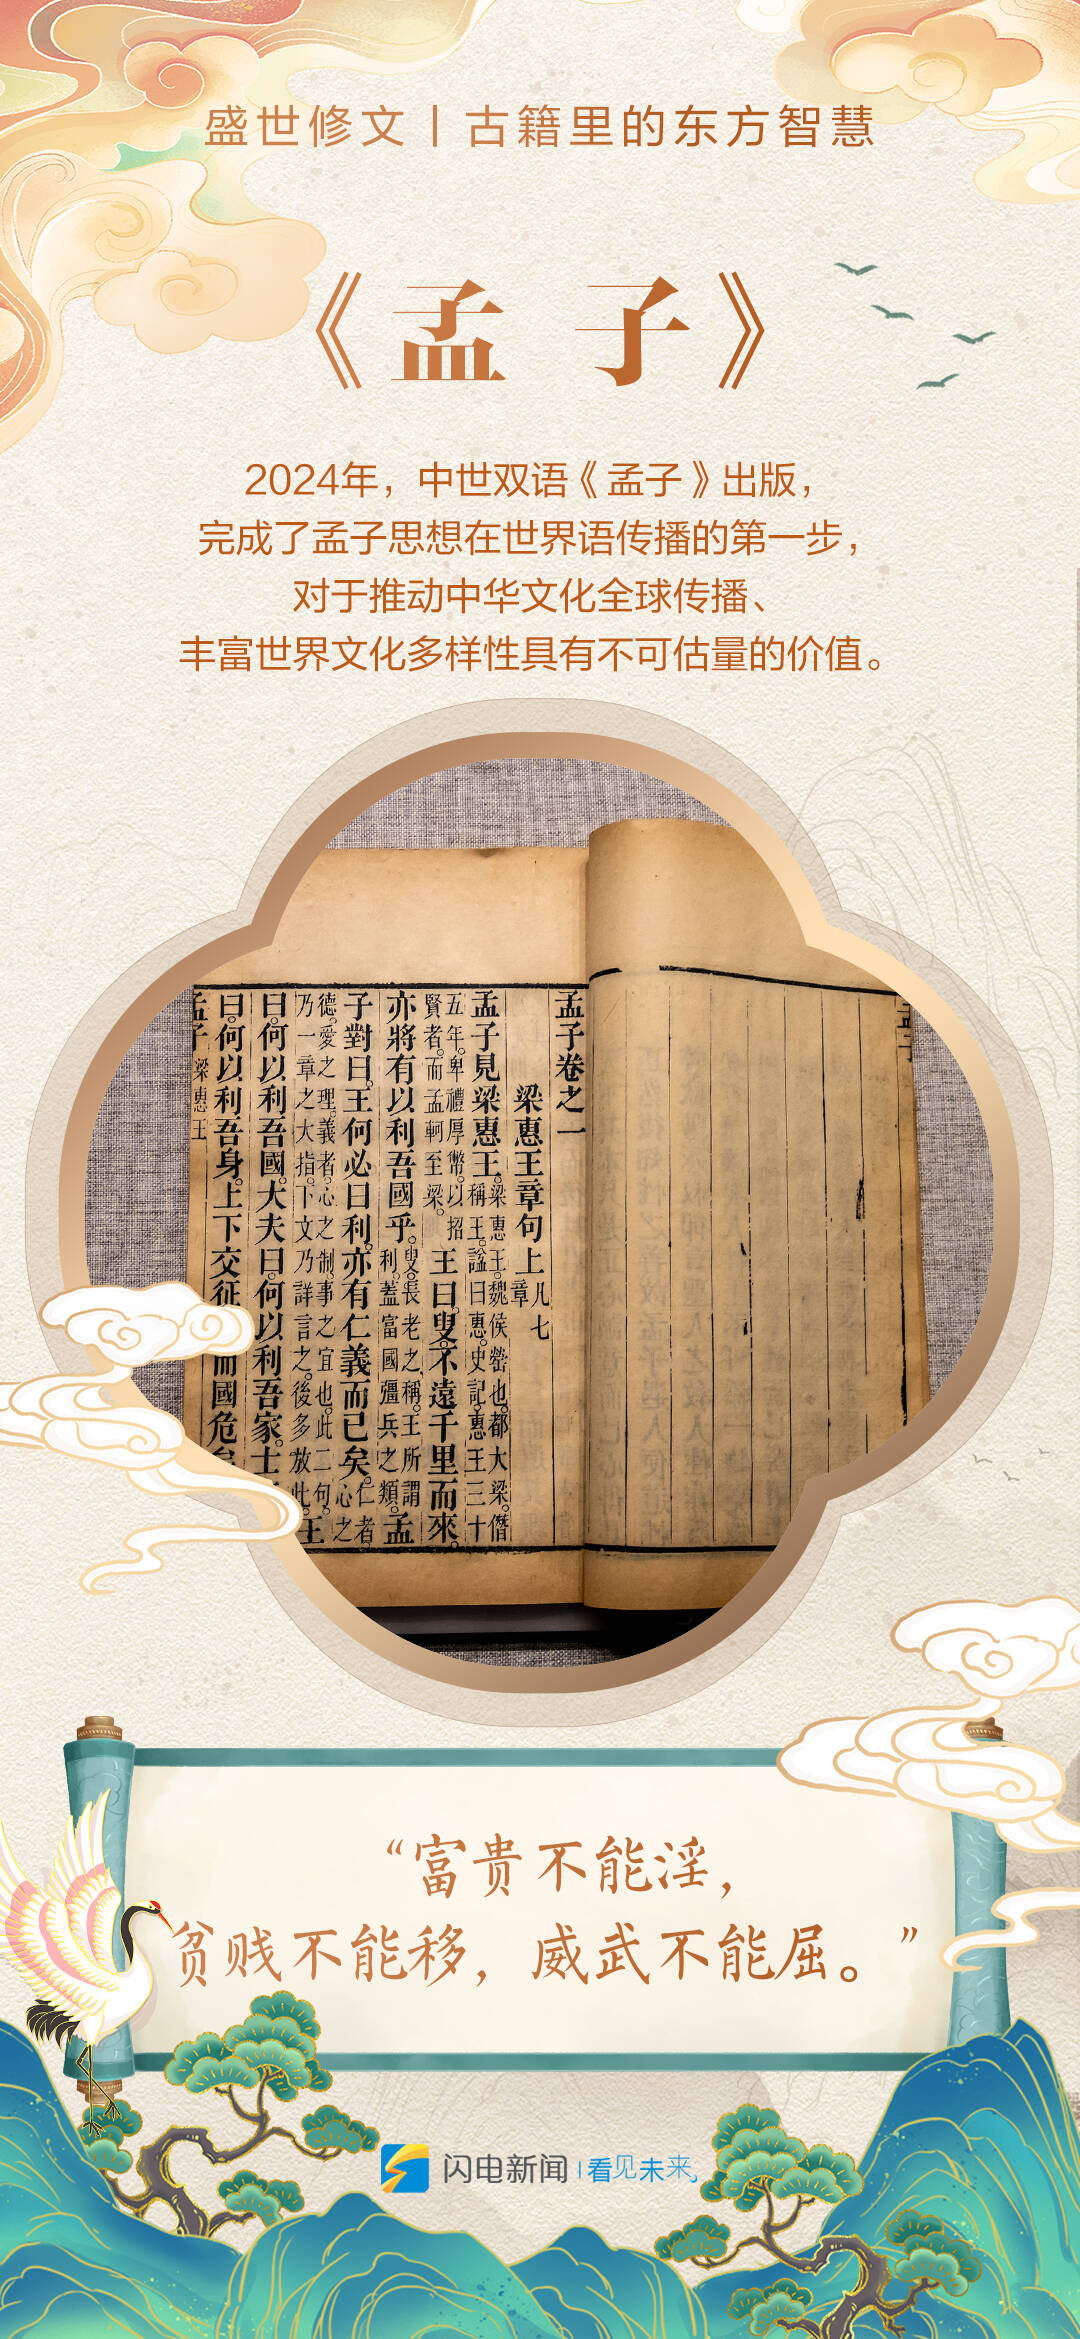 盛世修文丨古籍里的东方智慧
《孟子》
2024年，中世双语《孟子》出版，
完成了孟子思想在世界语传播的第一步，
对于推动中华文化全球传播、
丰富世界文化多样性具有不可估量的价值。
孟子卷之一
梁惠王章句上凡七章
孟子見梁惠王。梁惠王。魏侯罃也。都大梁。僭稱王。諡曰惠。史記。惠王三十
五年。卑禮厚幣。以招賢者。而孟軻至梁。王曰。叟。不遠千里而來。
亦將有以利吾國乎。叟。長老之稱。王所謂利。蓋富國彊兵之類。孟
子對曰。王何必曰利。亦有仁義而已矣。仁者。心之
德。愛之理。義者。心之制。事之宜也。此二句。乃一章之大指。下文乃詳言之。後多放此。王
曰。何以利吾國。大夫曰。何以利吾家。士
曰。何以利吾身。上下交征 而國危矣
孟子 梁惠王
“富贵不能淫，
贫贱不能移，威武不能屈。”
闪电新闻 | 看见未来